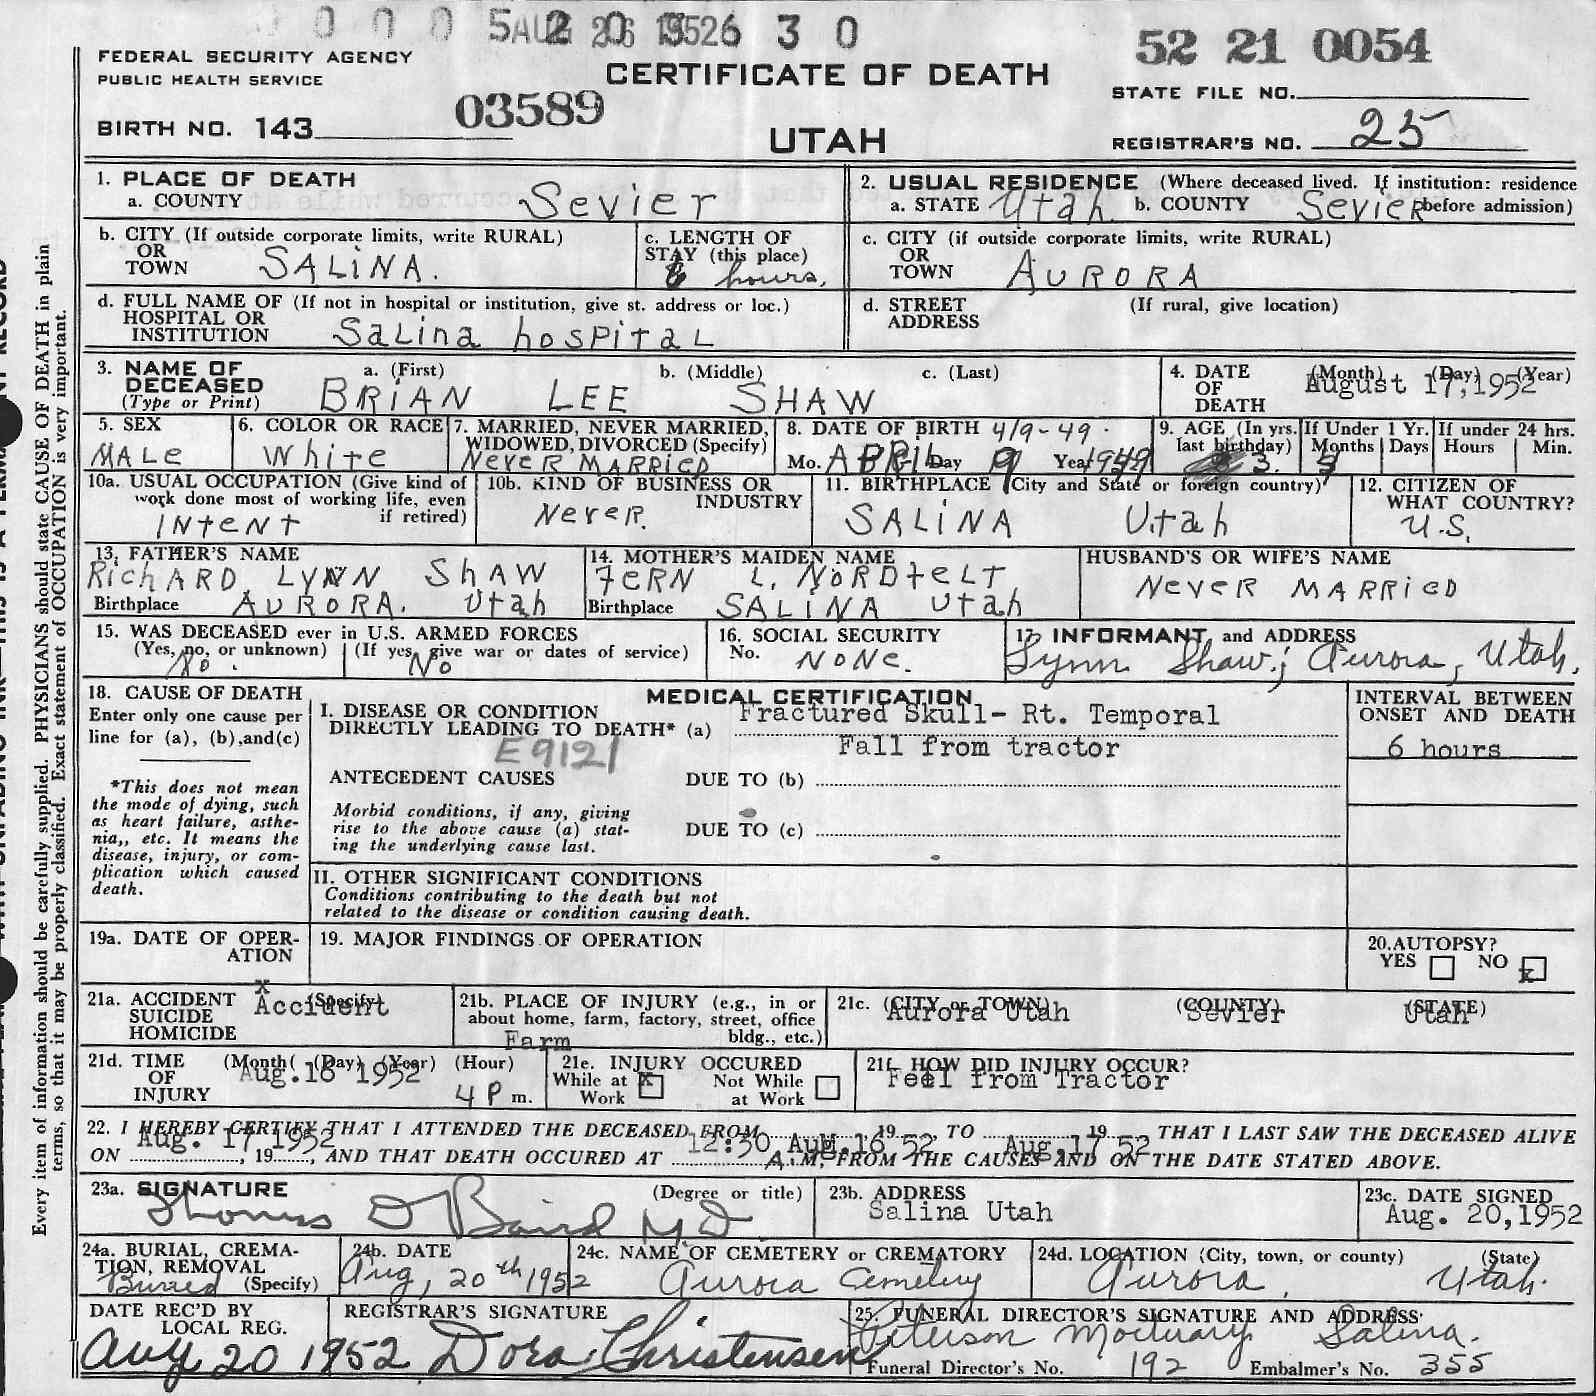 0 0 0 5 2 0 5 6 3 0
AUG 26 1952
52 21 0054
FEDERAL SECURITY AGENCY
PUBLIC HEALTH SERVICE
CERTIFICATE OF DEATH
STATE FILE NO.
03589
BIRTH NO. 143
UTAH
REGISTRAR'S NO. 25
1. PLACE OF DEATH
a. COUNTY Sevier
2. USUAL RESIDENCE (Where deceased lived. If institution: residence before admission)
a. STATE Utah b. COUNTY Sevier
b. CITY (If outside corporate limits, write RURAL)
OR TOWN SALiNA.
c. LENGTH OF STAY (this place)
6 hours.
c. CITY (if outside corporate limits, write RURAL)
OR TOWN AURORA
d. FULL NAME OF (If not in hospital or institution, give st. address or loc.)
HOSPITAL OR INSTITUTION Salina hospital
d. STREET ADDRESS (If rural, give location)
3. NAME OF DECEASED (Type or Print)
a. (First) b. (Middle) c. (Last)
BRiAN LEE SHAW
4. DATE OF DEATH (Month) (Day) (Year)
August 17,1952
5. SEX
MALe
6. COLOR OR RACE
White
7. MARRIED, NEVER MARRIED, WIDOWED, DIVORCED (Specify)
Never MARRied
8. DATE OF BIRTH 4/9-49.
Mo. APRIL Day 9 Year 1949
9. AGE (In yrs. last birthday) 3.
If Under 1 Yr. Months Days
If under 24 hrs. Hours Min.
10a. USUAL OCCUPATION (Give kind of work done most of working life, even if retired)
INtENT
10b. KIND OF BUSINESS OR INDUSTRY
NeveR.
11. BIRTHPLACE (City and State or foreign country)
SALiNA Utah
12. CITIZEN OF WHAT COUNTRY?
U.S.
13. FATHER'S NAME
RicHARD LYNN SHAW
Birthplace AURORA. Utah
14. MOTHER'S MAIDEN NAME
FERN L. NORDfELT
Birthplace SALiNA Utah
HUSBAND'S OR WIFE'S NAME
Never MARRIED
15. WAS DECEASED ever in U.S. ARMED FORCES
(Yes, no, or unknown) (If yes, give war or dates of service)
No. No
16. SOCIAL SECURITY No.
NoNe.
17. INFORMANT and ADDRESS
Lynn Shaw; Aurora, Utah.
18. CAUSE OF DEATH
Enter only one cause per line for (a), (b), and (c)
*This does not mean the mode of dying, such as heart failure, asthenia,, etc. It means the disease, injury, or complication which caused death.
MEDICAL CERTIFICATION
I. DISEASE OR CONDITION DIRECTLY LEADING TO DEATH* (a) Fractured Skull- Rt. Temporal
Fall from tractor
E9121
ANTECEDENT CAUSES DUE TO (b)
Morbid conditions, if any, giving rise to the above cause (a) stating the underlying cause last.
DUE TO (c)
INTERVAL BETWEEN ONSET AND DEATH
6 hours
II. OTHER SIGNIFICANT CONDITIONS
Conditions contributing to the death but not related to the disease or condition causing death.
19a. DATE OF OPERATION
19. MAJOR FINDINGS OF OPERATION
20. AUTOPSY?
YES NO x
21a. ACCIDENT SUICIDE HOMICIDE (Specify)
x
Accident
21b. PLACE OF INJURY (e.g., in or about home, farm, factory, street, office bldg., etc.)
Farm
21c. (CITY or TOWN) (COUNTY) (STATE)
Aurora Utah Sevier Utah
21d. TIME OF INJURY (Month) (Day) (Year) (Hour)
Aug.16 1952 4 P m.
21e. INJURY OCCURED
While at Work x Not While at Work
21f. HOW DID INJURY OCCUR?
Feel from Tractor
22. I HEREBY CERTIFY THAT I ATTENDED THE DECEASED FROM Aug.16 19 52 TO Aug.17 19 52 THAT I LAST SAW THE DECEASED ALIVE
ON Aug. 17 1952, 19 , AND THAT DEATH OCCURED AT 12:30 A.M, FROM THE CAUSES AND ON THE DATE STATED ABOVE.
23a. SIGNATURE (Degree or title)
Thomas D Baird M D
23b. ADDRESS
Salina Utah
23c. DATE SIGNED
Aug. 20,1952
24a. BURIAL, CREMATION, REMOVAL (Specify)
Buried
24b. DATE
Aug, 20th 1952
24c. NAME OF CEMETERY or CREMATORY
Aurora Cemetery
24d. LOCATION (City, town, or county) (State)
Aurora, Utah.
DATE REC'D BY LOCAL REG.
Aug 20 1952
REGISTRAR'S SIGNATURE
Dora Christensen
25. FUNERAL DIRECTOR'S SIGNATURE AND ADDRESS
Peterson Mortuary Salina.
Funeral Director's No. 192 Embalmer's No. 355
Every item of information should be carefully supplied. PHYSICIANS should state CAUSE OF DEATH in plain
terms, so that it may be properly classified. Exact statement of OCCUPATION is very important.